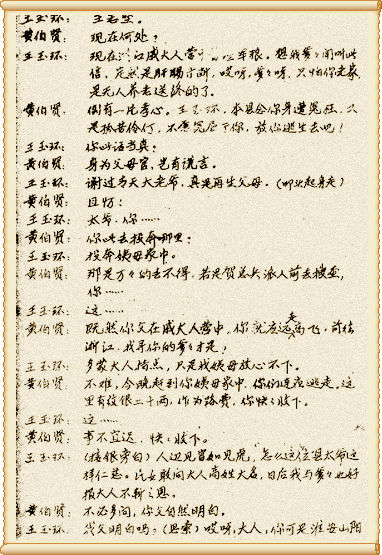 王玉环： 王君玺。
黄伯贤： 现在何处？
王玉环： 现在浙江戚大人营中 军粮。想我爹闻听此
信，定然是肝肠寸断，哎呀，爹爹呀，只怕你老家
是无人养老送终的了。
黄伯贤： 倒有一片孝心。王玉环，本县念你身遭冤枉，又
是孤苦伶仃，不愿冤屈于你，放你逃生去吧！
王玉环： 你此话当真？
黄伯贤： 身为父母官，岂有谎言。
王玉环： 谢过青天大老爷，真是再生父母。（叩头起身走）
黄伯贤： 且慢：
王玉环： 太爷，你……
黄伯贤： 你此去投奔那里？
王玉环： 投奔姨母家中。
黄伯贤： 那是万万的去不得，若是贺总兵派人前去搜查，
你……
王玉环： 这……
黄伯贤： 既然你父在戚大人营中，你就应远走高飞，前往
浙江，找寻你的爹爹才是！
王玉环： 多蒙大人指点，只是我姨母放心不下。
黄伯贤： 不难，今晚赶到你姨母家中，你们连夜逃走。这
里有纹银二十两，作为路费，你快快收下。
王玉环： 这……
黄伯贤： 事不宜迟，快快收下。
王玉环： （接银旁白）人边见官如见虎，怎么这位县太爷这
样仁慈。民女敢问大人高姓大名，日后我与爹爹也好
报大人不斩之恩。
黄伯贤： 不必多问，你父自然明白。
王玉环： 我父明白吗：（思索）哎呀，大人，你可是淮安山阳